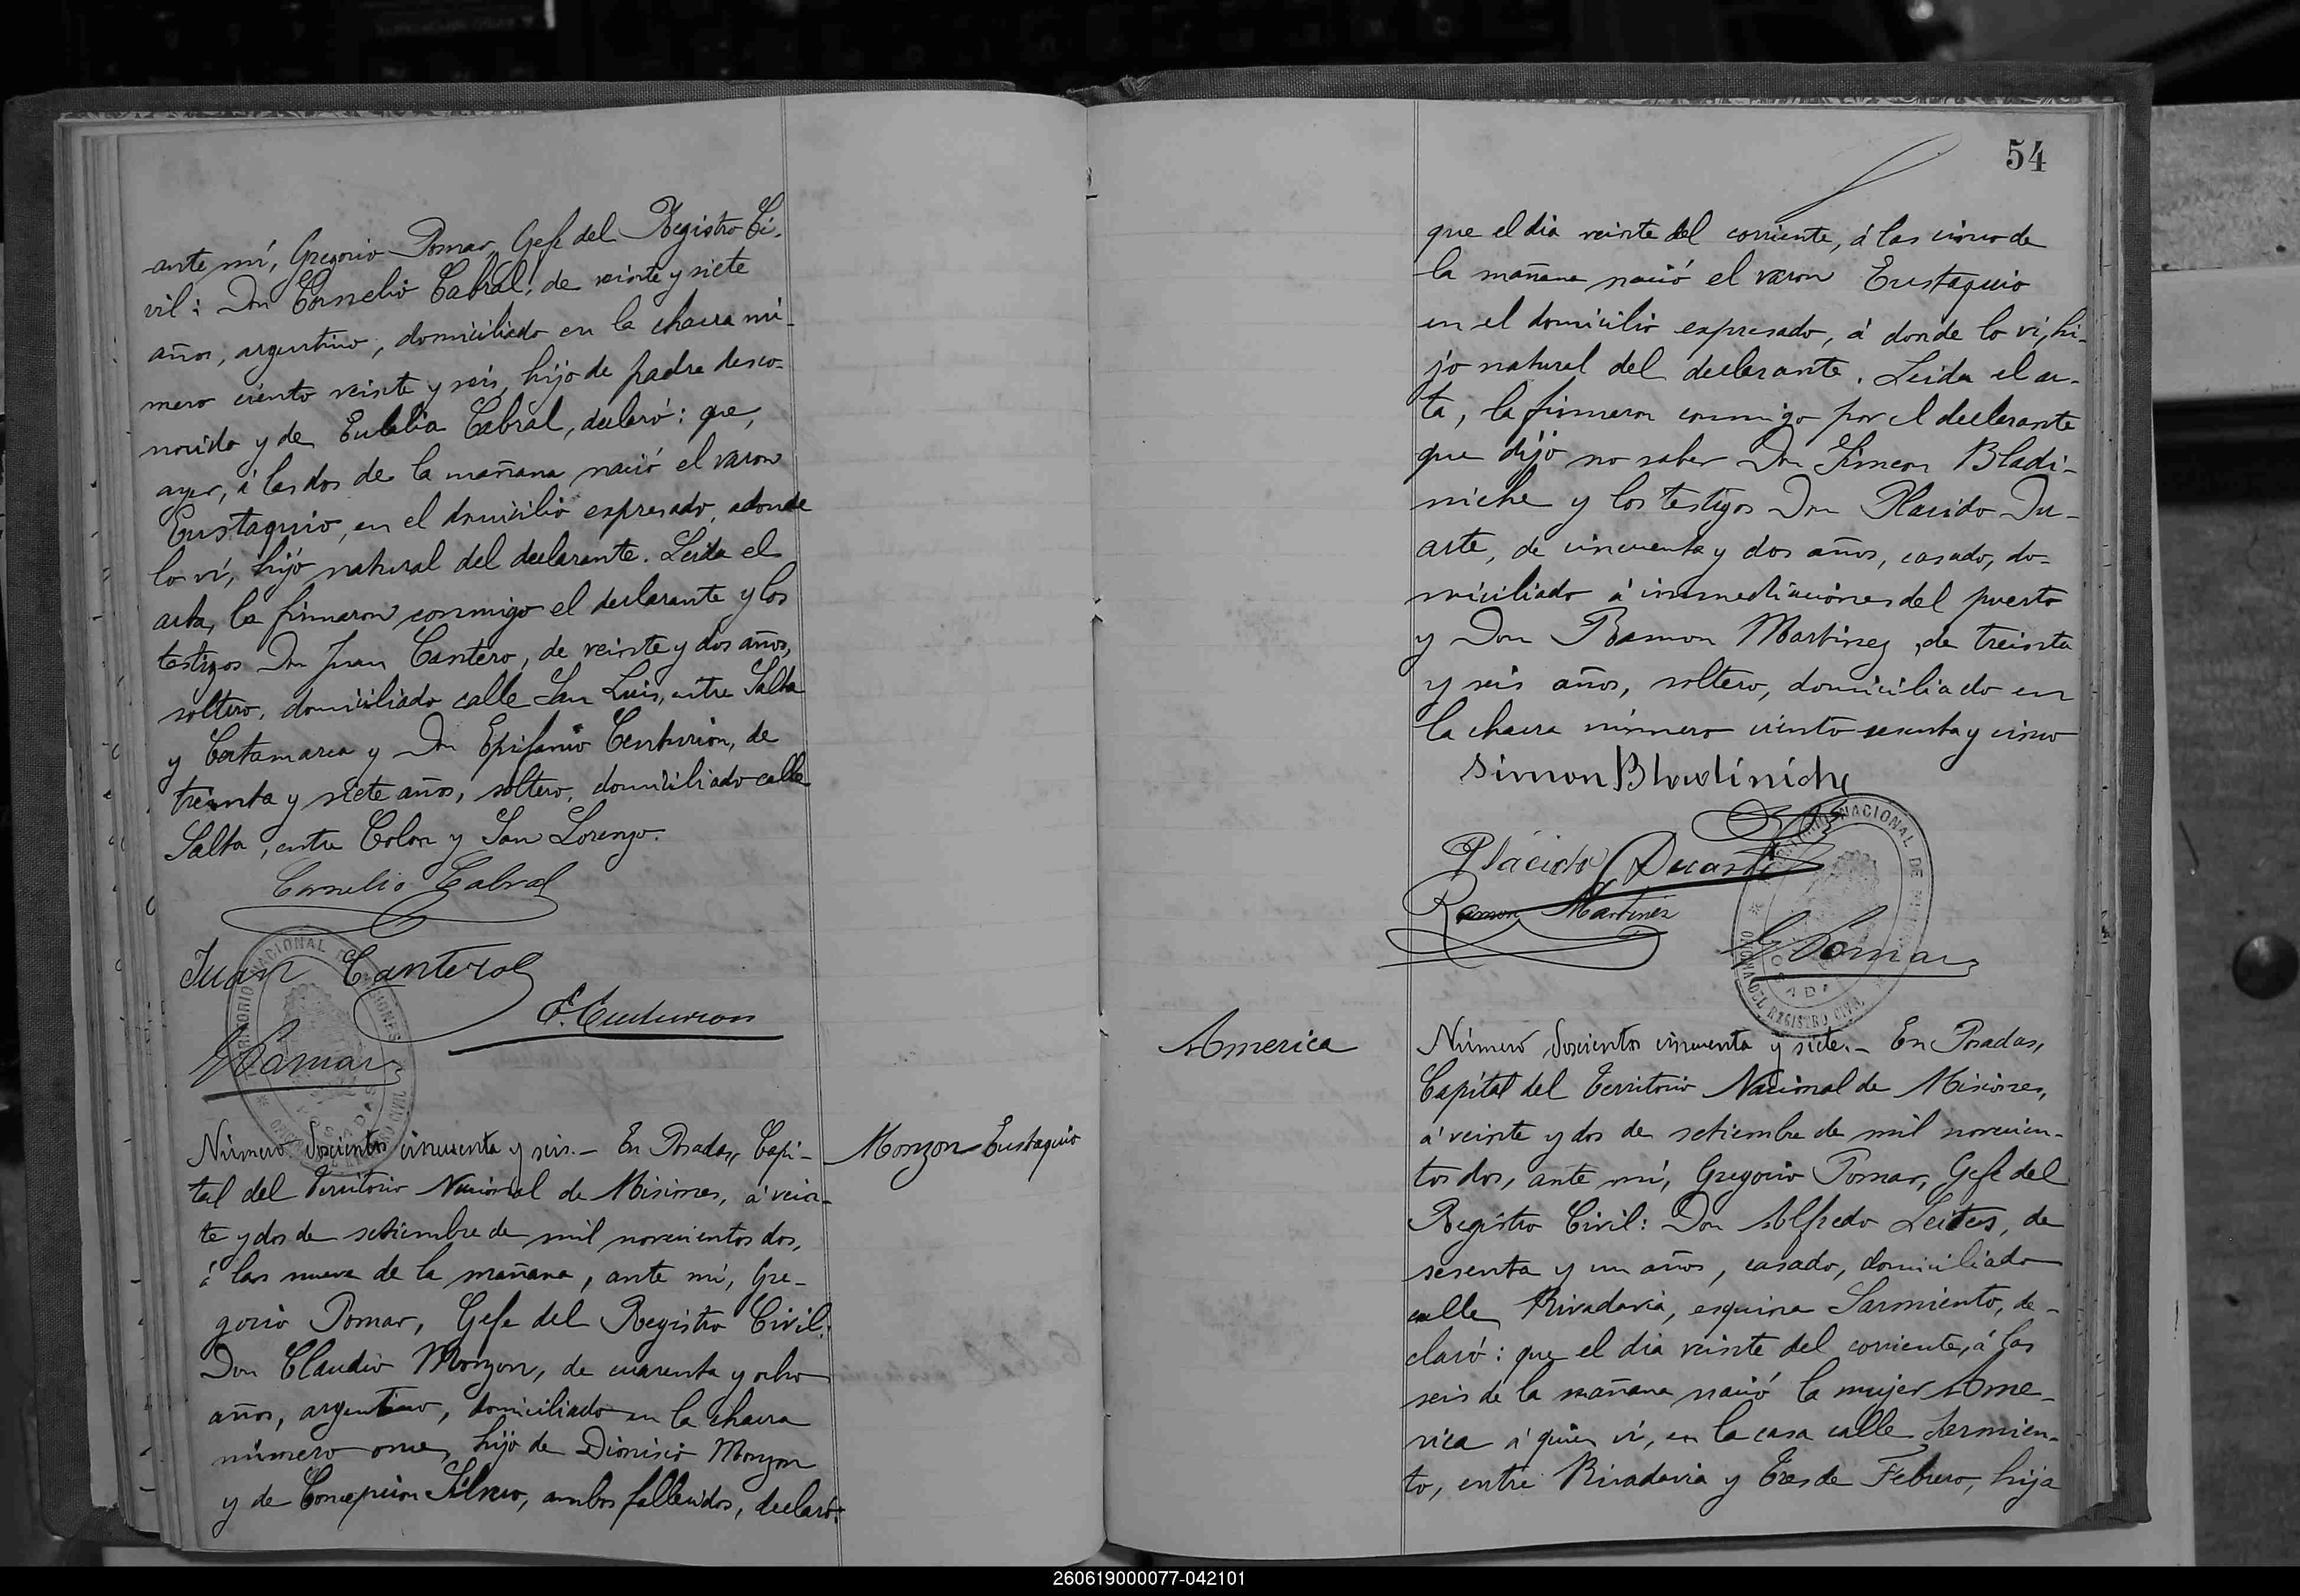 ante mí, Gregorio Pomar, Gefe del Registro Ci-
vil: Don Cornelio Cabral, de veinte y siete
años, argentino, domiciliado en la chacra nú-
mero ciento veinte y seis, hijo de padre desco-
nocido y de Eulalia Cabral, declaró: que,
ayer, á las dos de la mañana nació el varon
Eustaquio, en el domicilio expresado, adonde
lo ví, hijo natural del declarante. Leida el
acta, la firmaron conmigo el declarante y los
testigos Don Juan Cantero, de veinte y dos años,
soltero, domiciliado calle San Luis, entre Salta
y Catamarca y Don Epifanio Centurion, de
treinta y siete años, soltero, domiciliado calle
Salta, entre Colon y San Lorenzo.
Cornelio Cabral
Juan Cantero
E. Centurion
GPomar
Número doscientos cincuenta y seis.- En Posadas, Capi-
tal del Territorio Nacional de Misiones, á vein-
te y dos de setiembre de mil novecientos dos,
á las nueve de la mañana, ante mí, Gre-
gorio Pomar, Gefe del Registro Civil:
Don Claudio Monzon, de cuarenta y ocho
años, argentino, domiciliado en la chacra
número once, hijo de Dionisio Monzon
y de Concepcion, ambos fallecidos, declaró:
Monzon Eustaquio
54
que el dia veinte del corriente, á las cinco de
la mañana nació el varon Eustaquio
en el domicilio expresado, á donde lo ví, hi-
jo natural del declarante. Leida el ac-
ta, la firmaron conmigo por el declarante
que dijo no saber Don Simeon Bladi-
niche y los testigos Don Placido Du-
arte, de cincuenta y dos años, casado, do-
miciliado á inmediaciones del puerto
y Don Ramon Martinez, de treinta
y seis años, soltero, domiciliado en
la chacra número ciento sesenta y cinco
Simon Bladiniche
Plácido Duarte
Ramon Martinez
GPomar
TERRITORIO NACIONAL DE MISIONES
OFICINA DEL REGISTRO CIVIL
POSADAS
America
Número doscientos cincuenta y siete.- En Posadas,
Capital del Territorio Nacional de Misiones,
á veinte y dos de setiembre de mil novecien-
tos dos, ante mí, Gregorio Pomar, Gefe del
Registro Civil: Don Alfredo Leites, de
sesenta y un años, casado, domiciliado
calle Rivadavia, esquina Sarmiento, de-
claró: que el dia veinte del corriente, á las
seis de la mañana nació la mujer Ame-
rica á quien ví, en la casa calle Sarmien-
to, entre Rivadavia y Tres de Febrero, hija
260619000077-042101